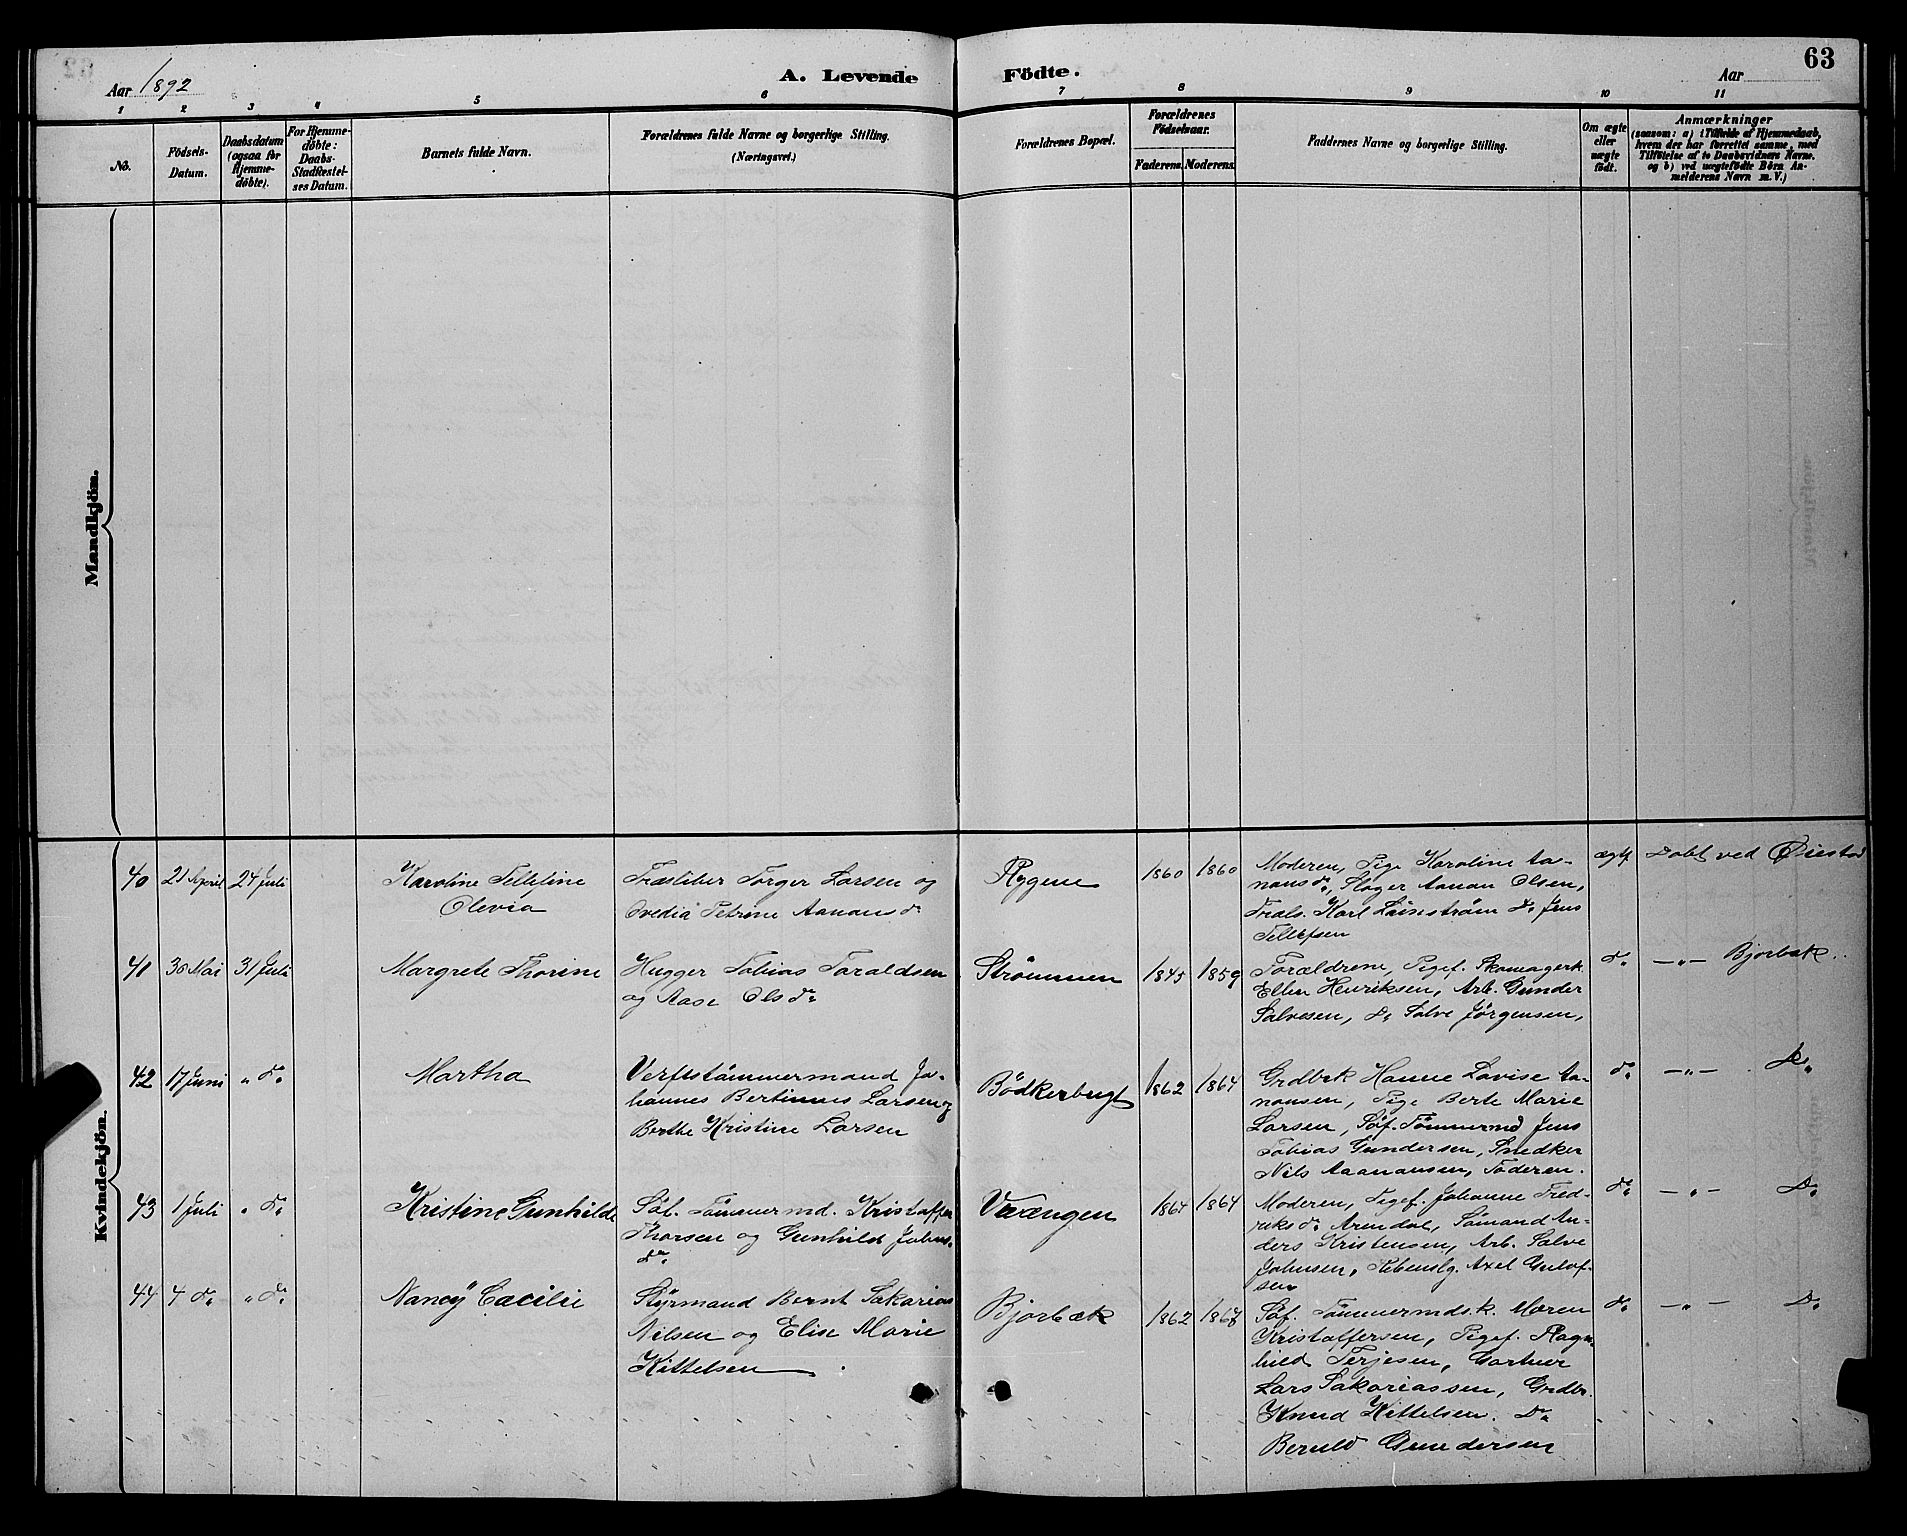 63
Aar 1892
A. Levende
Födte.
Aar
1 2 3 4 5 6 7 8 9 10 11
No.
Födsels-
Datum.
Daabsdatum
(ogsaa for
Hjemme-
døbte).
For Hjemme-
døbte:
Daabs-
Stadfæstel-
ses Datum.
Barnets fulde Navn.
Forældrenes fulde Navne og borgerlige Stilling.
(Næringsvei.)
Forældrenes Bopæl.
Forældrenes
Fødselsaar.
Faderens. Moderens.
Faddernes Navne og borgerlige Stilling.
Om ægte
eller
uægte
født.
Anmærkninger
(saasom: a) i Tilfælde af Hjemmedaab,
hvem der har forrettet samme, med
Tilføielse af to Daabsvidners Navne,
og b) ved uægtefødte Børn An-
melderens Navn m. V.)
Mandkjön.
Kvindekjön.
40 21 April 24 Juli
Karoline Tellefine
Olevia
Torger Larsen og
Ovedia Petrine Aanans dr
Rygene
1860 1860
Moderen, Pige Karoline Aa-
nans dr, Slager Aanan Olsen,
Karl Lönström Do Jens
Tellefsen
ægtf Døbt ved Øiestad
41 30 Mai 31 Juli
Margrete Thorine
Hugger Tobias Taraldsen
og Aase Ols dr
Strömmen
1845 1859
Forældrene, Pigef. Skomagerk.
Ellen Henriksen, Arb. Gunder
Salvesen, Do Salve Jörgensen,
do —„— Bjorbæk
42 17 Juni „ do
Martha
Verftstömmermand Jo-
hannes Bertinius Larsen og
Berthe Kristine Larsen
Bödkerbugt
1862 1864
Grdbrk Hanne Lovise Aa-
nonsen, Pige Berte Marie
Larsen, Söf. Tömmermd Jens
Tobias Gundersen, Snedker
Nils Aaanansen, Faderen.
do —„— Do
43 1 Juli „ do
Kristine Gunhilde
Söf. Tömmermd. Kristoffer
Thorsen og Gunhild Johns-
dr.
Vrængen
1864 1864
Moderen, Pigef. Johanne Fred-
riks dr Arendal, Sömand An-
ders Kristensen, Arb. Salve
Johnsen, Axel Gulof-
sen
do —„— Do
44 4 do „ do
Nancy Cacilie
Styrmand Bernt Sakarias
Nilsen og Elise Marie
Kittelsen
Bjorbæk
1862 1867
Söf. Tömmermdsk. Maren
Kristoffersen, Pigef. Ragn-
hild Terjesen, Gartner
Lars Sakariassen, Grdbr.
Knud Kittelsen. Do
Beruld Gundersen
do —„— Do